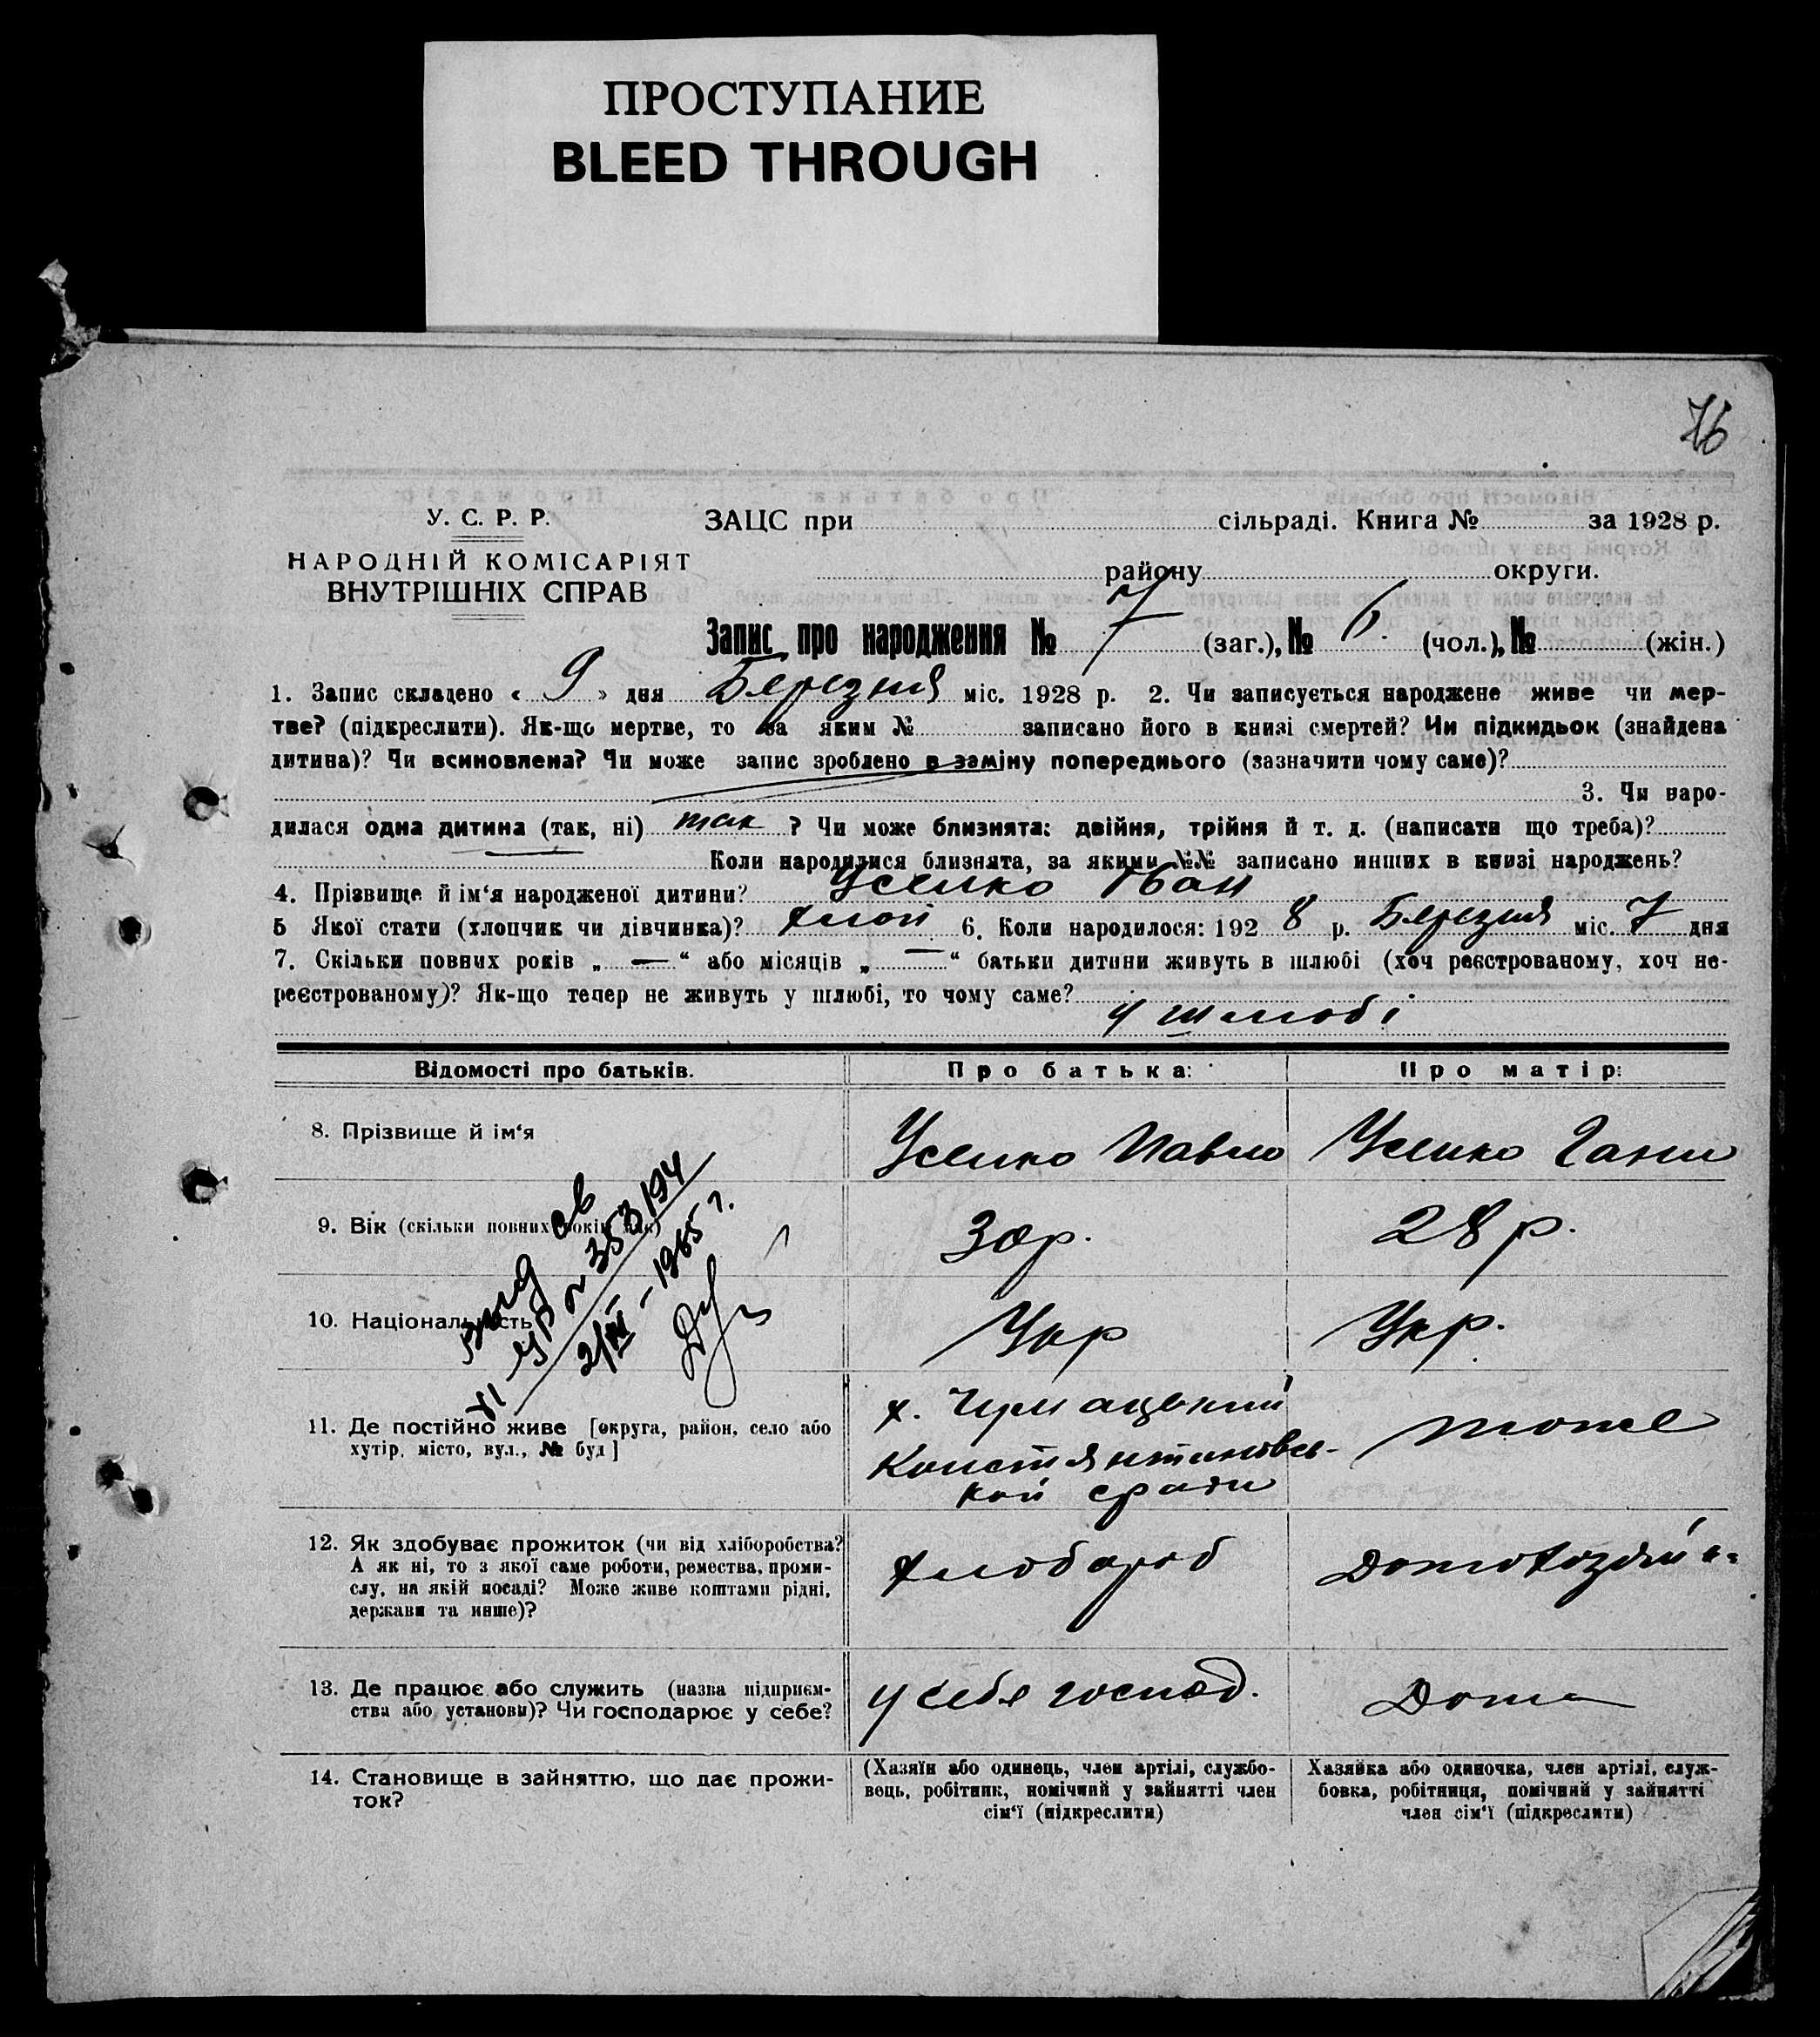 ПРОСТУПАНИЕ
BLEED THROUGH
76
У. С. Р. Р.
НАРОДНІЙ КОМІСАРІЯТ
ВНУТРІШНІХ СПРАВ
ЗАЦС при сільраді. Книга № за 1928 р.
району округи.
Запис про народження № 7 (заг.), № 6. (чол.), № (жін.)
1. Запис складено « 9 » дня Березня міс. 1928 р. 2. Чи записується народжене живе чи мер-
тве? (підкреслити). Як-що мертве, то за яким № записано його в книзі смертей? Чи підкидьок (знайдена
дитина)? Чи всиновлена? Чи може запис зроблено в заміну попереднього (зазначити чому саме)?
3. Чи наро-
дилася одна дитина (так, ні) так ? Чи може близнята: двійня, трійня й т. д. (написати що треба)?
Коли народилися близнята, за якими №№ записано инших в книзі народжень?
4. Прізвище й ім‘я народженої дитини? Усенко Іван
5 Якої стати (хлопчик чи дівчинка)? хлоп 6. Коли народилося: 192 8 р. Березня міс. 7 дня
7. Скільки повних років „ — “ або місяців „ — “ батьки дитини живуть в шлюбі (хоч реєстрованому, хоч не-
реєстрованому)? Як-що тепер не живуть у шлюбі, то чому саме?
у шлюбі
Відомості про батьків. Про батька: Про матір:
8. Прізвище й ім‘я Усенко Павло Усенко Ганна
9. Вік (скільки повних років має) 30р. 28 р.
10. Національність Укр Укр.
видд св
XI УР № 353194
2/IV – 1965 г.
11. Де постійно живе [округа, район, село або
хутір, місто, вул., № буд]
х. Чумацький
Констянтиновсь-
кой сради
тоже
12. Як здобуває прожиток (чи від хліборобства?
А як ні, то з якої саме роботи, ремества, проми-
слу, на якій посаді? Може живе коштами рідні,
держави та инше)?
хлобороб
домохозяй
13. Де працює або служить (назва підприєм-
ства або установи)? Чи господарює у себе?
у себе господ.
Дома
14. Становище в зайняттю, що дає прожи-
ток?
(Хазяїн або одинець, член артілі, службо-
вець, робітник, помічний у зайнятті член
сім‘ї (підкреслити)
Хазяйка або одиночка, член артілі, служ-
бовка, робітниця, помічний у зайнятті
член сім‘ї (підкреслити)